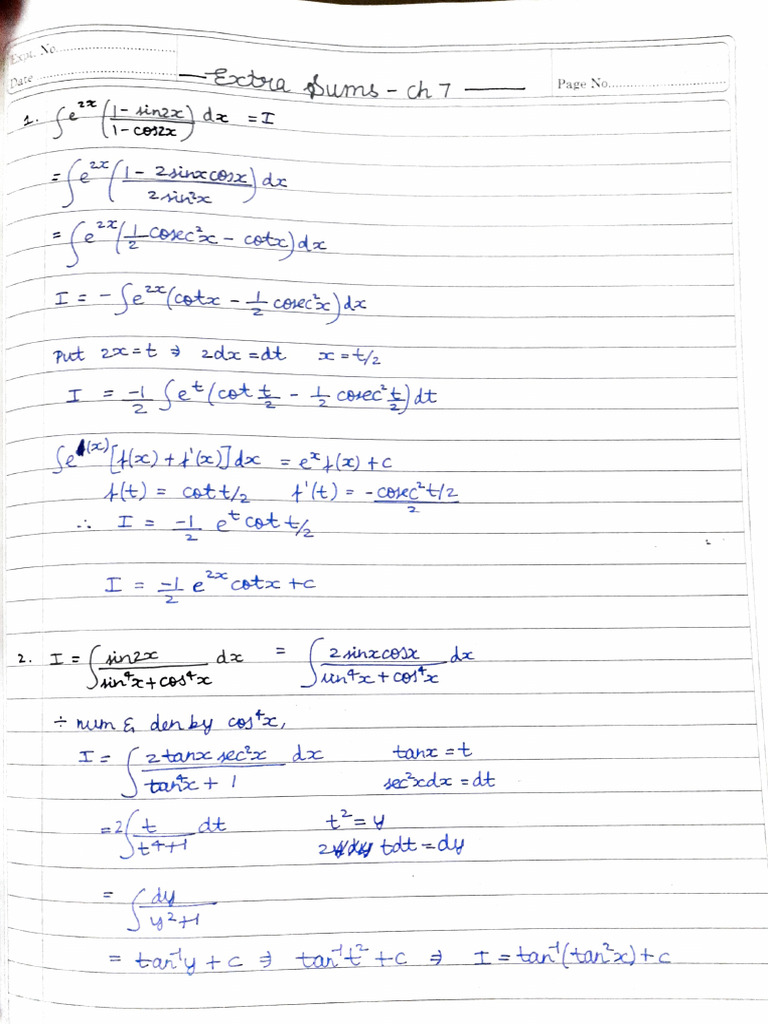 Expt. No.
Date
Page No.
— Extra Sums - ch 7 —
1. ∫e^2x ((1 - sin2x)/(1 - cos2x)) dx = I
= ∫e^2x ((1 - 2sinxcosx)/(2sin²x)) dx
= ∫e^2x (1/2 cosec²x - cotx) dx
I = -∫e^2x (cotx - 1/2 cosec²x) dx
Put 2x = t ⇒ 2dx = dt x = t/2
I = -1/2 ∫e^t (cot t/2 - 1/2 cosec² t/2) dt
[f(x) + f'(x)] dx = e^x f(x) + c
f(t) = cot t/2 f'(t) = -cosec² t/2 / 2
∴ I = -1/2 e^t cot t/2
I = -1/2 e^2x cotx + c
2. I = ∫ sin2x/(sin⁴x + cos⁴x) dx = ∫ 2sinxcosx/(sin⁴x + cos⁴x) dx
÷ num & den by cos⁴x,
I = ∫ 2tanx sec²x/(tan⁴x + 1) dx tanx = t
sec²xdx = dt
= 2∫ t/(t⁴+1) dt t² = y
2 tdt = dy
= ∫ dy/(y²+1)
= tan⁻¹y + c ⇒ tan⁻¹t² + c ⇒ I = tan⁻¹(tan²x) + c